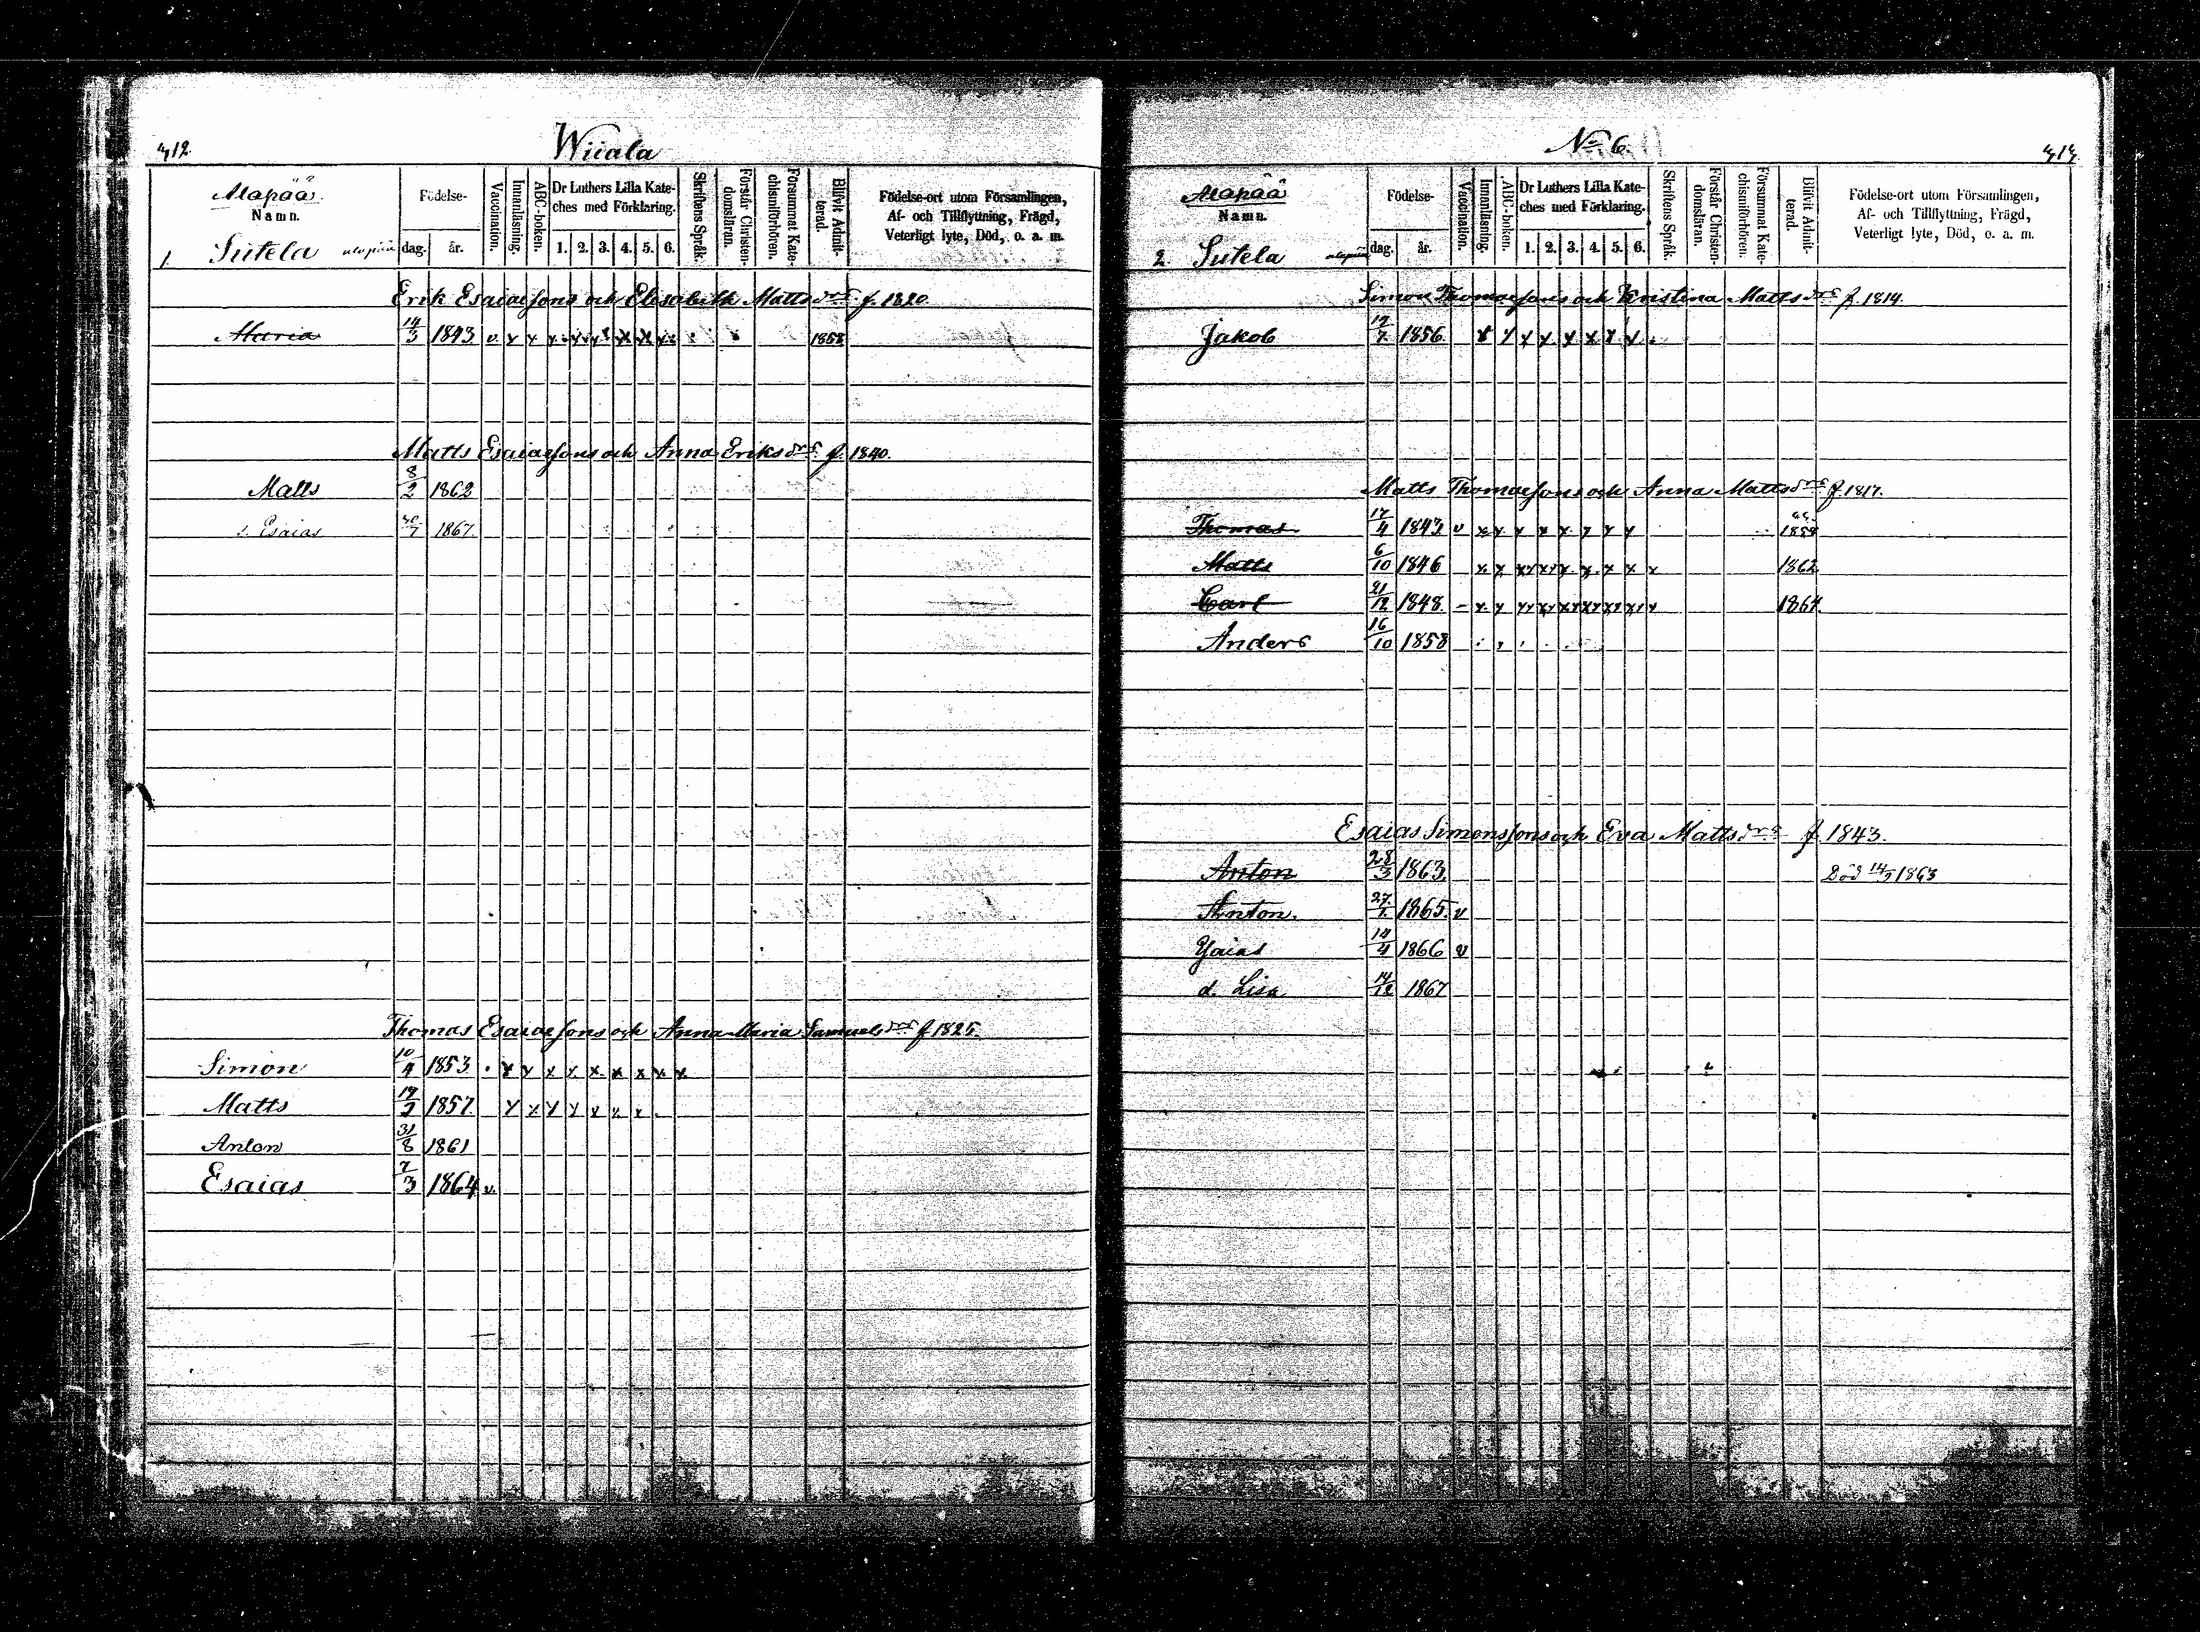 412
Wiiala
Alapää.
Namn.
1. Sutela alapää
Födelse-
dag.
år.
Vaccination.
Innanläsning.
ABC-boken.
Dr Luthers Lilla Kate-
ches med Förklaring.
1. 2. 3. 4. 5. 6.
Skriftens Språk.
Förstår Christen-
domsläran.
Försummat Kate-
chismiförhören.
Blifvit Admit-
terad.
Födelse-ort utom Församlingen,
Af- och Tillflyttning, Frägd,
Veterligt lyte, Död, o. a. m.
Erik Esaiaessons och Elisabeth Mattsdrs f. 1820.
Maria 14/3 1843 v x x x x x x x x 1858
Matts Esaiaessons och Anna Eriksdrs f. 1840.
Matts 8/2 1862
s. Esaias 1867
Thomas Esaiaessons och Anna Maria Samuelsdrs f 1825.
Simon 10/4 1853 x x x x x x x x x
Matts 1857 x x x x x x x
Anton 31/8 1861
Esaias 7/3 1864 v.
No 6.
Alapää
Namn.
2. Sutela alapää
Födelse-
dag.
år.
Vaccination.
Innanläsning.
ABC-boken.
Dr Luthers Lilla Kate-
ches med Förklaring.
1. 2. 3. 4. 5. 6.
Skriftens Språk.
Förstår Christen-
domsläran.
Försummat Kate-
chismiförhören.
Blifvit Admit-
terad.
Födelse-ort utom Församlingen,
Af- och Tillflyttning, Frägd,
Veterligt lyte, Död, o. a. m.
Simon Thomaessons och Kristina Mattsdrs f. 1814.
Jakob 1856 x x x x x x x x
Matts Thomaessons och Anna Mattsdrs f. 1817.
Thomas 17/4 1843 v x x x x x x x x
Matts 6/10 1846 x x x x x x x x x 1862
Carl 21/12 1848 – x x x x x x x x 1864
Anders 16/10 1858
Esaias Simonssons och Eva Mattsdrs f 1843.
Anton 28/3 1863. Död 1863
Anton. 1865. v
Yaias 14/4 1866 v
d. Lisa 14/12 1867